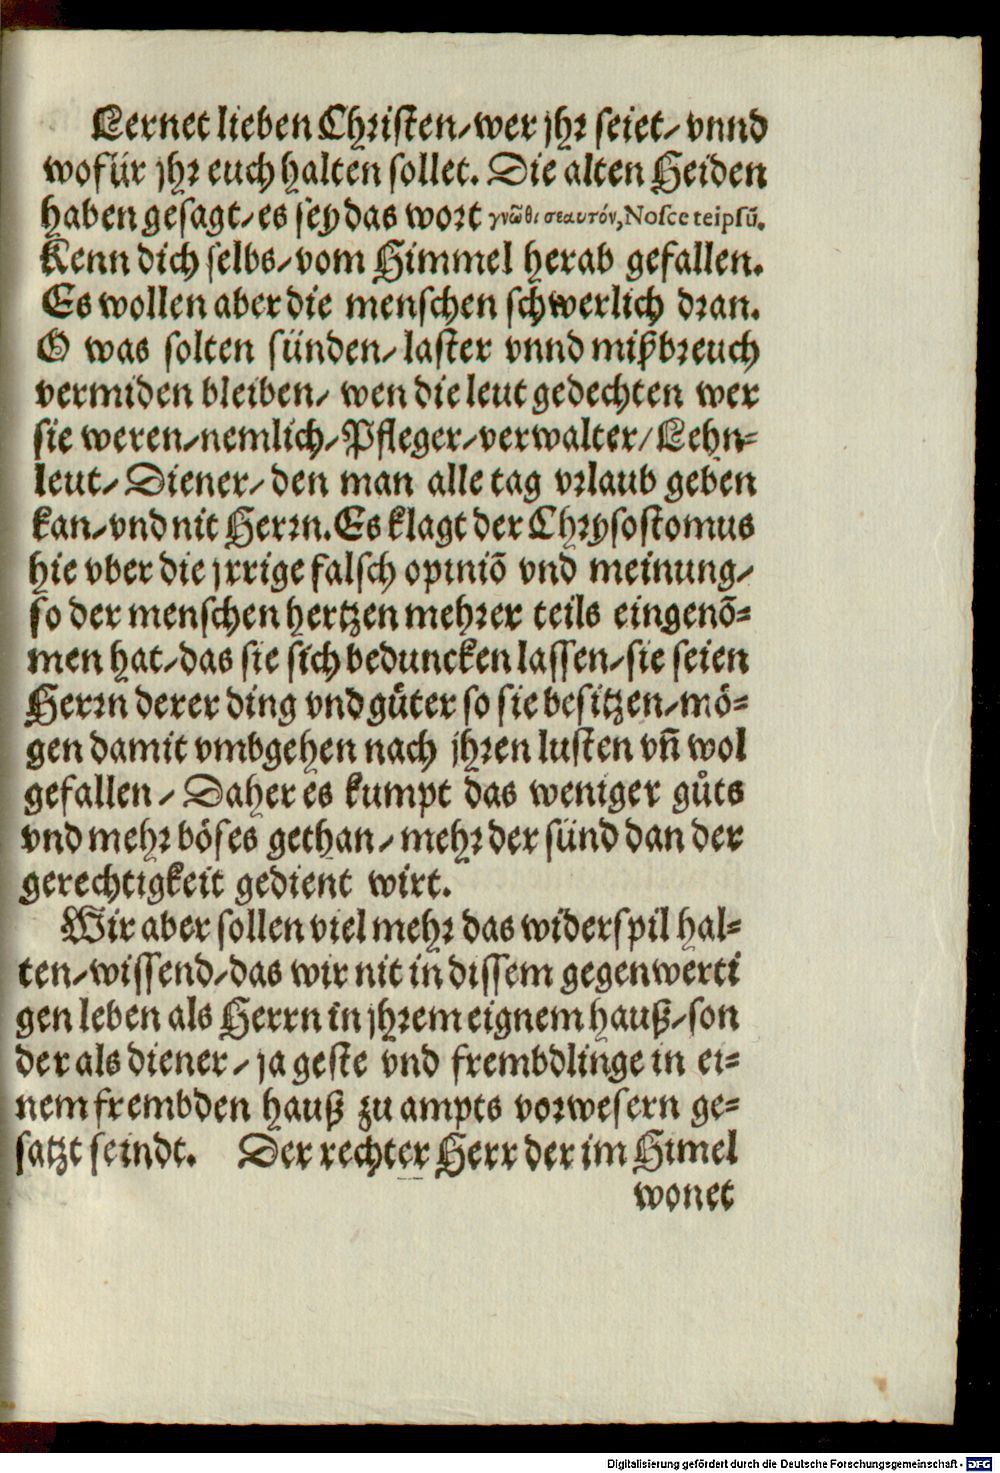 Lernet lieben Christen/ wer jhr seiet/ vnnd
wofür jhr euch halten sollet. Die alten Heiden
haben gesagt/ es sey das wort γνῶθι σεαυτόν, Nosce teipsū.
Kenn dich selbs/ vom Himmel herab gefallen.
Es wollen aber die menschen schwerlich dran.
O was solten sünden/ laster vnnd mißbreuch
vermiden bleiben/ wen die leut gedechten wer
sie weren/ nemlich/ Pfleger/ verwalter/ Lehn-
leut/ Diener/ den man alle tag vrlaub geben
kan/ vnd nit Herrn. Es klagt der Chrysostomus
hie vber die jrrige falsch opiniō vnd meinung/
so der menschen hertzen mehrer teils eingenō-
men hat/ das sie sich beduncken lassen/ sie seien
Herrn derer ding vnd gůter so sie besitzen/ mö-
gen damit vmbgehen nach jhren lusten vn̄ wol
gefallen/ Daher es kumpt das weniger gůts
vnd mehr böses gethan/ mehr der sünd dan der
gerechtigkeit gedient wirt.
Wir aber sollen viel mehr das widerspil hal-
ten/ wissend/ das wir nit in dissem gegenwerti
gen leben als Herrn in jhrem eignem hauß/ son
der als diener/ ja geste vnd frembdlinge in ei-
nem frembden hauß zu ampts vorwesern ge-
satzt seindt. Der rechter Herr der im Himel
wonet
Digitalisierung gefördert durch die Deutsche Forschungsgemeinschaft - DFG